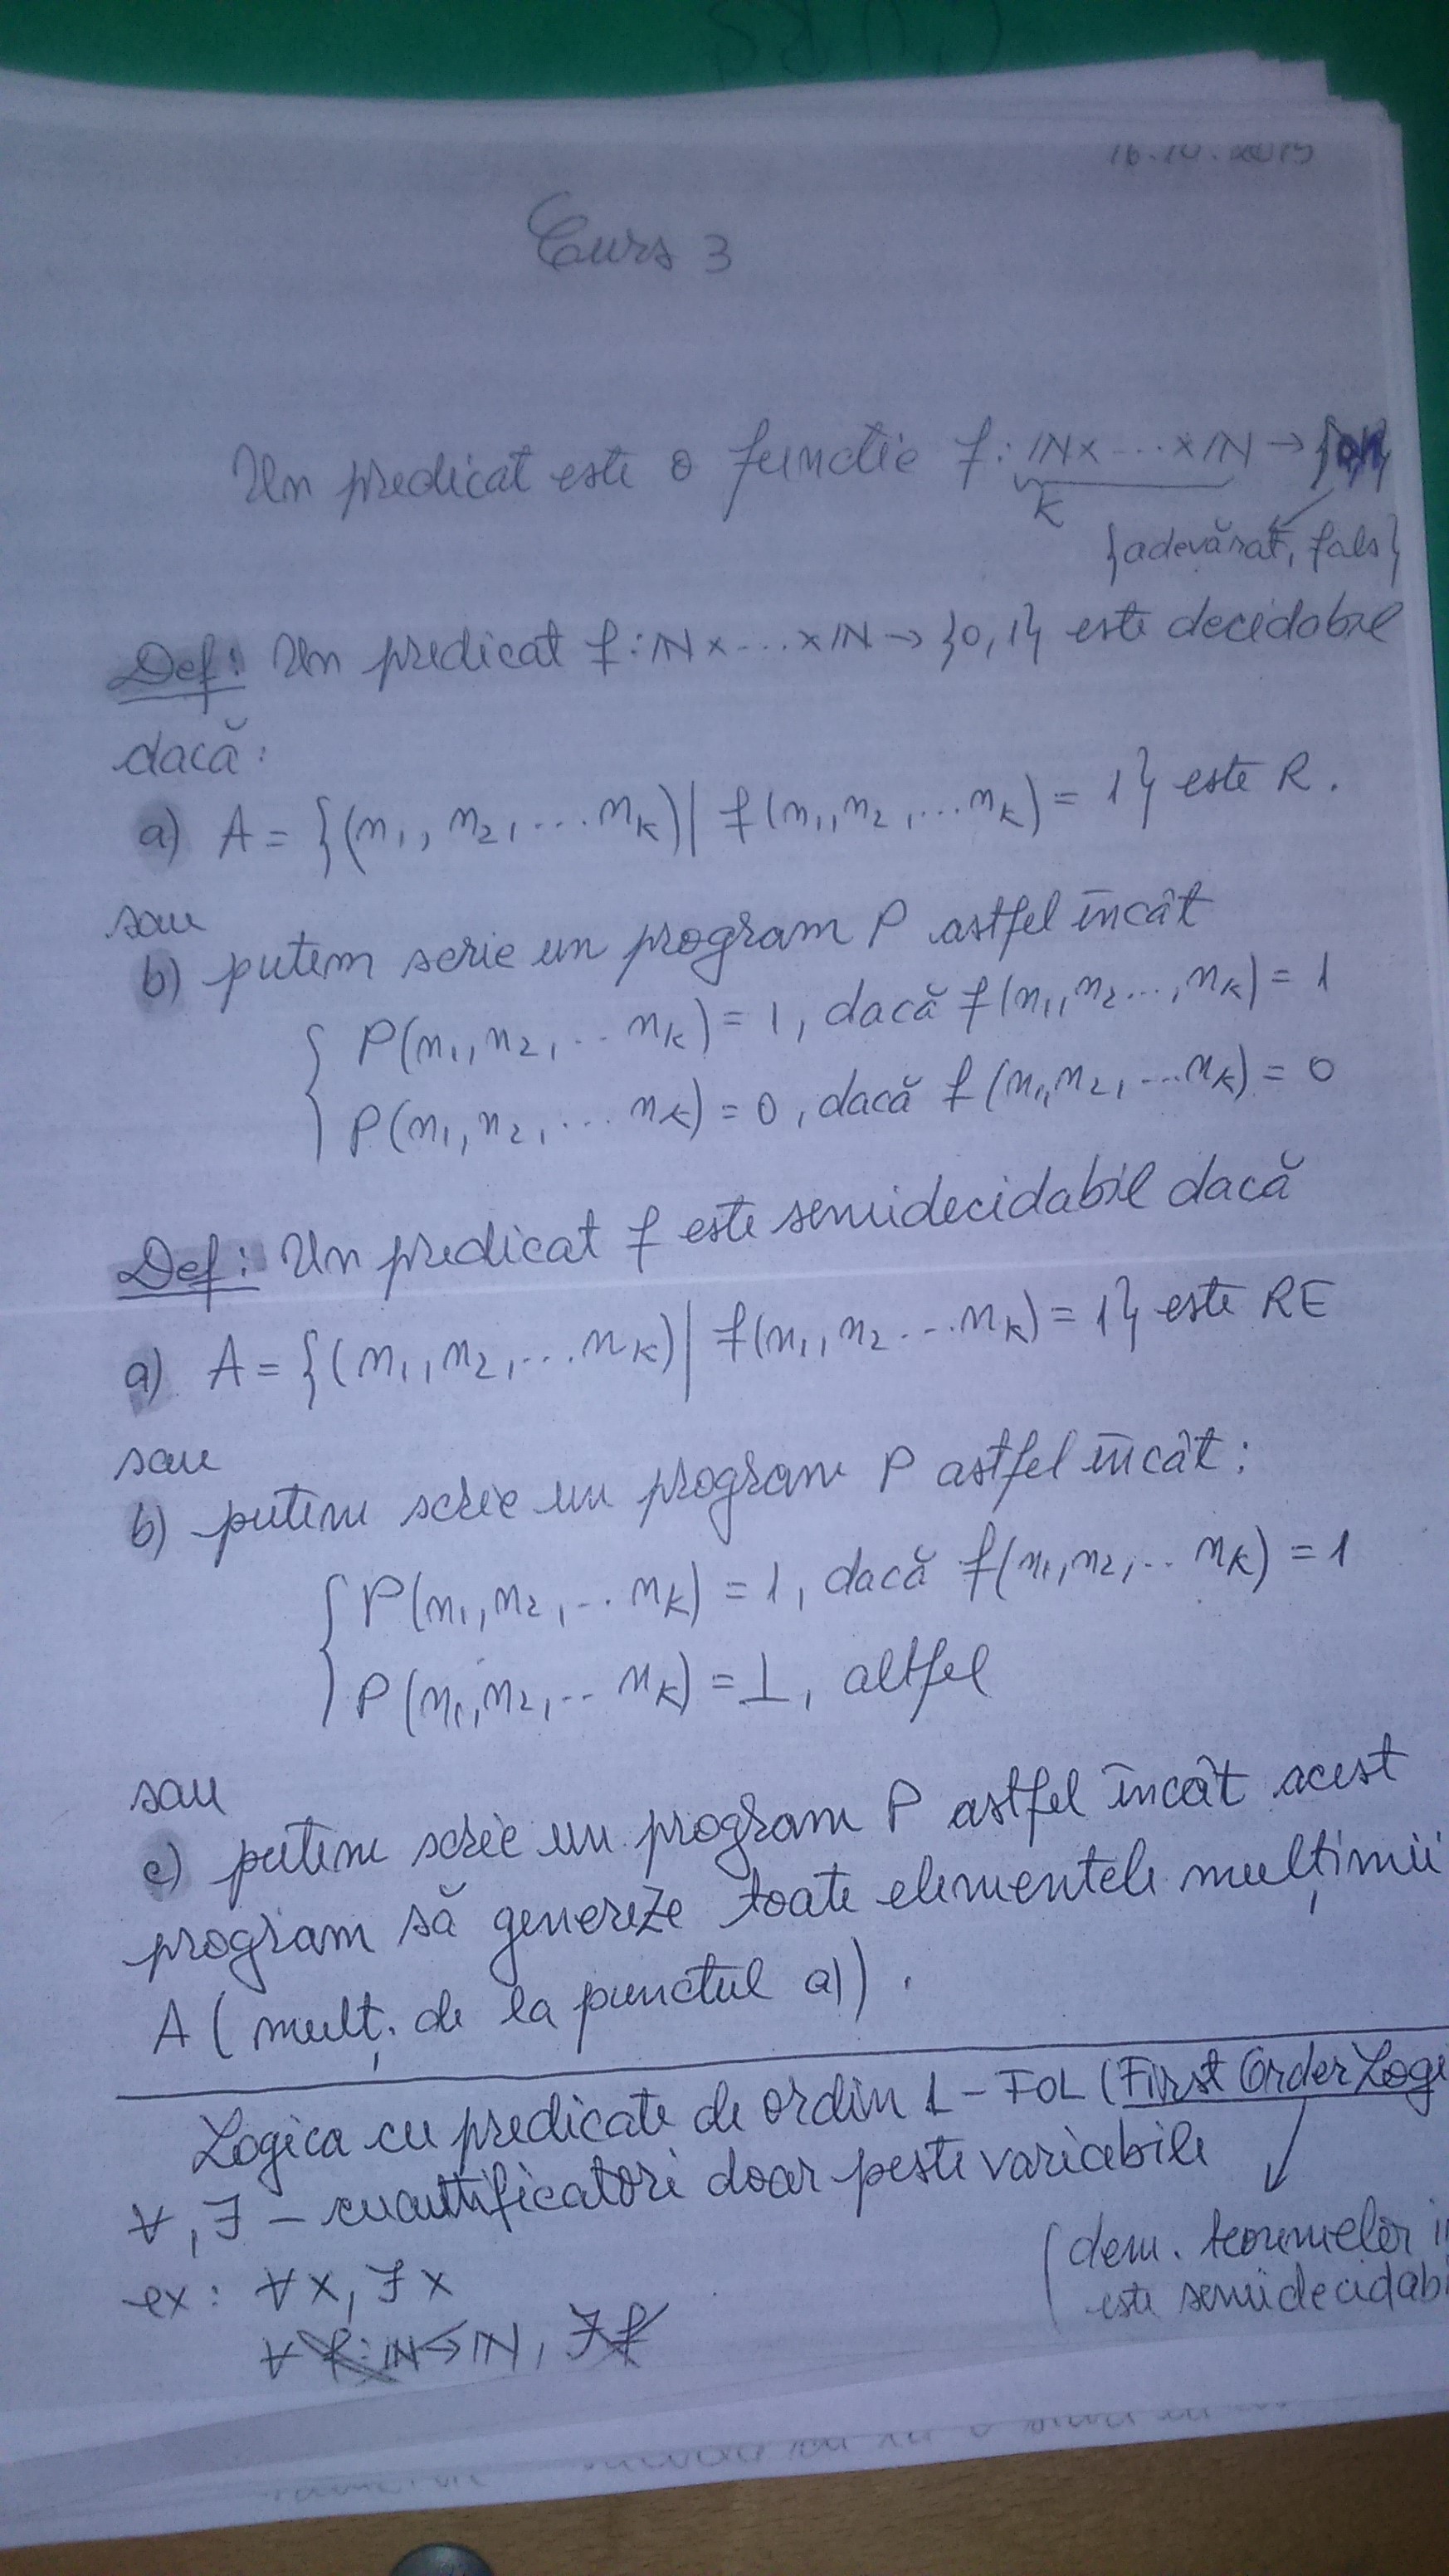 Curs 3
Un predicat este o functie f: ℕ x ... x ℕ → {0,1}
k
{adevărat, fals}
Def: Un predicat f: ℕ x ... x ℕ → {0,1} este decidabil
dacă:
a) A = {(n₁, n₂, ... nₖ) | f(n₁, n₂, ... nₖ) = 1} este R.
sau
b) putem scrie un program P astfel încât
P(n₁, n₂, ... nₖ) = 1, dacă f(n₁, n₂ ..., nₖ) = 1
P(n₁, n₂, ... nₖ) = 0, dacă f(n₁, n₂, ... nₖ) = 0
Def: Un predicat f este semidecidabil dacă
a) A = {(n₁, n₂, ... nₖ) | f(n₁, n₂ ... nₖ) = 1} este RE
sau
b) putem scrie un program P astfel încât:
P(n₁, n₂, ... nₖ) = 1, dacă f(n₁, n₂, ... nₖ) = 1
P(n₁, n₂, ... nₖ) = ⊥, altfel
sau
c) putem scrie un program P astfel încât acest
program să genereze toate elementele mulțimii
A (mulț. de la punctul a)).
Logica cu predicate de ordin 1 – FOL (First Order Logi
∀, ∃ – cuantificatori doar peste variabile
(dem. teoremelor î
ex: ∀x, ∃x
este semidecidabi
∀ f: ℕ → ℕ, ∃f